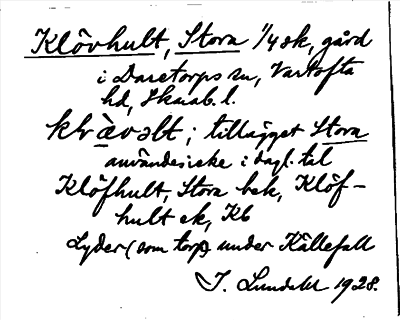 Klövhult, Stora 1/4 sk, gård
i Daretorps sn, Vartofta
hd, Skarab. l.
klɤ̀avəlt; tillägget Stora
användes icke i dagl. tal
Klöfhult, Stora bek, Klöf-
hult ek, Kb
Lyder (som torp) under Källefall
I. Lundahl 1928.